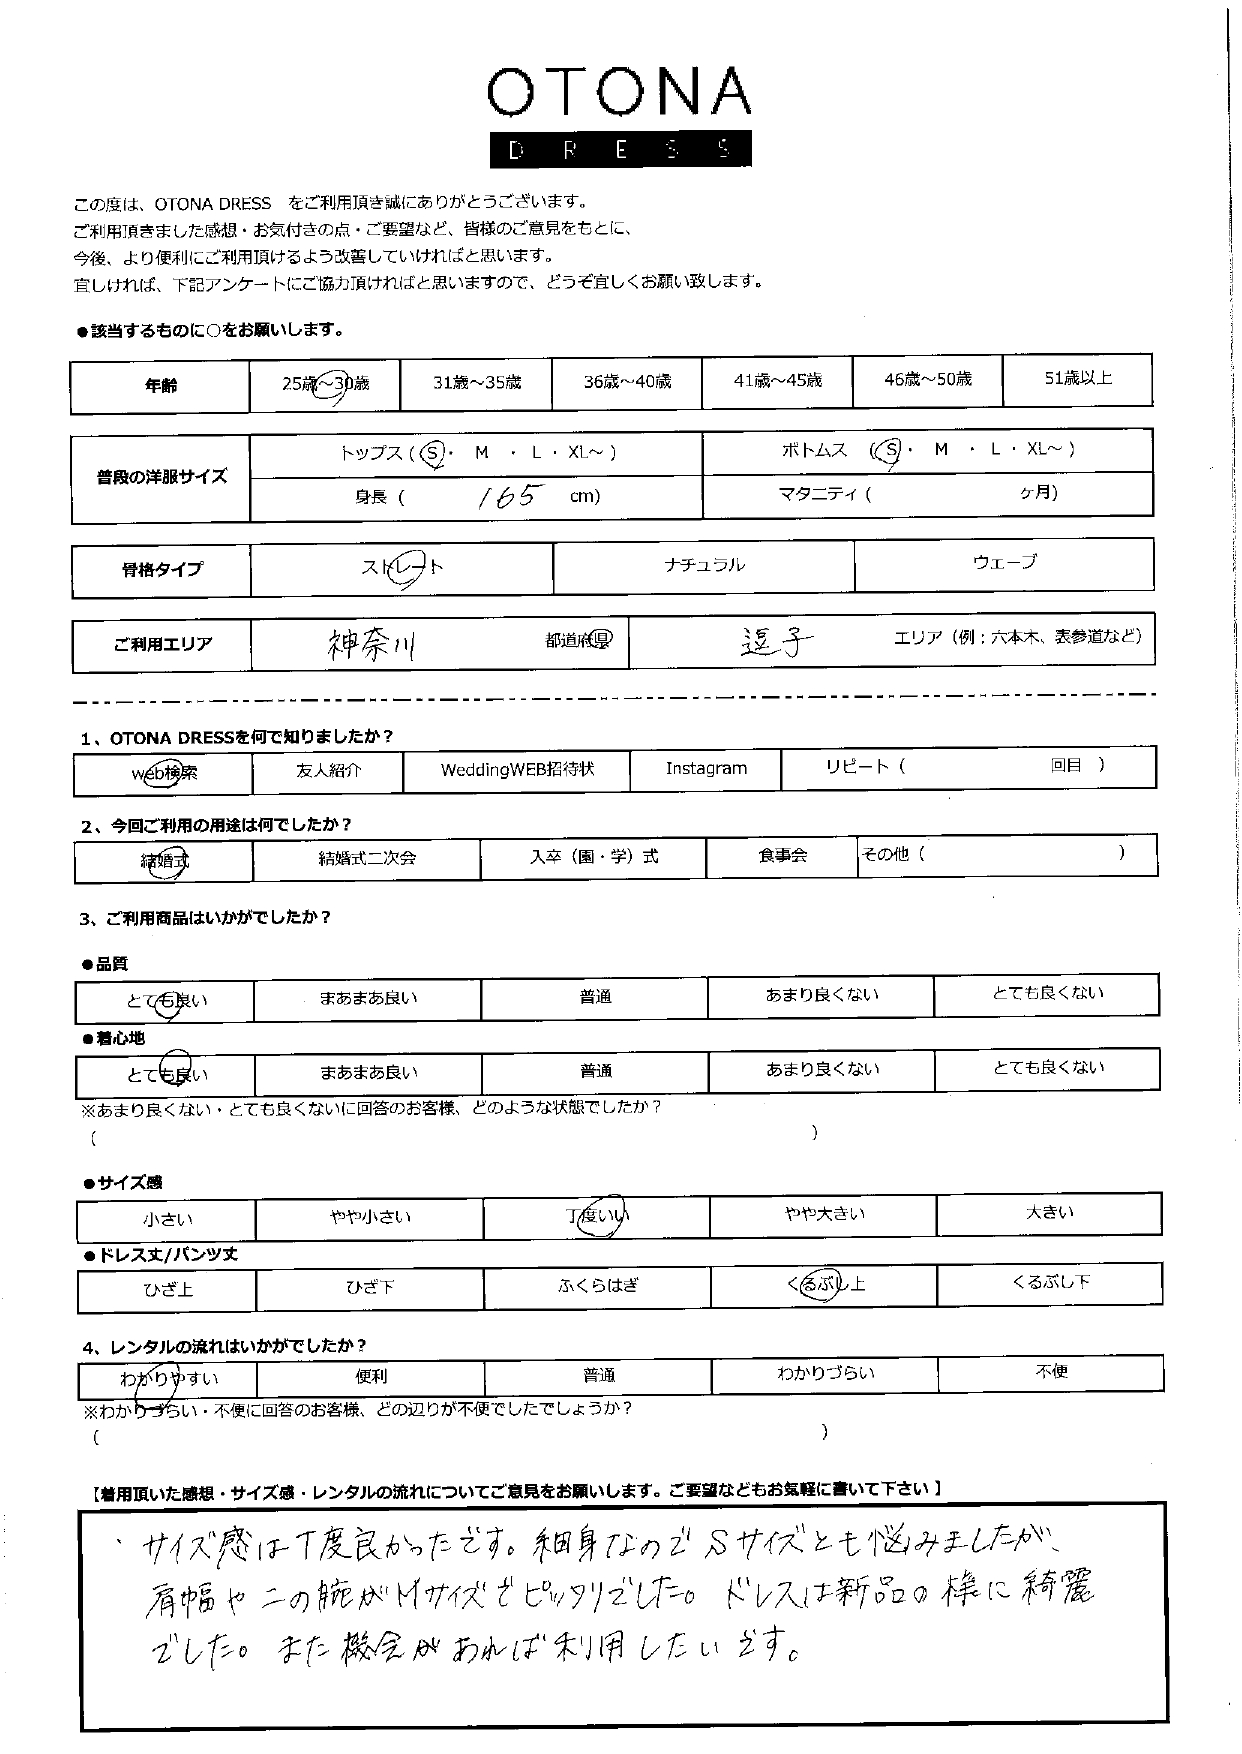 OTONA
DRESS
この度は、OTONA DRESS をご利用頂き誠にありがとうございます。
ご利用頂きました感想・お気付きの点・ご要望など、皆様のご意見をもとに、
今後、より便利にご利用頂けるよう改善していければと思います。
宜しければ、下記アンケートにご協力頂ければと思いますので、どうぞ宜しくお願い致します。
●該当するものに○をお願いします。
年齢 25歳～30歳 31歳～35歳 36歳～40歳 41歳～45歳 46歳～50歳 51歳以上
普段の洋服サイズ トップス ( S ・ M ・ L ・ XL～ ) ボトムス ( S ・ M ・ L ・ XL～ )
身長 ( 165 cm) マタニティ ( ケ月)
骨格タイプ ストレート ナチュラル ウェーブ
ご利用エリア 神奈川 都道府県 逗子 エリア（例：六本木、表参道など）
1、OTONA DRESSを何で知りましたか？
web検索 友人紹介 WeddingWEB招待状 Instagram リピート ( 回目 )
2、今回ご利用の用途は何でしたか？
結婚式 結婚式二次会 入卒（園・学）式 食事会 その他 ( )
3、ご利用商品はいかがでしたか？
●品質
とても良い まあまあ良い 普通 あまり良くない とても良くない
●着心地
とても良い まあまあ良い 普通 あまり良くない とても良くない
※あまり良くない・とても良くないに回答のお客様、どのような状態でしたか？
( )
●サイズ感
小さい やや小さい 丁度いい やや大きい 大きい
●ドレス丈/パンツ丈
ひざ上 ひざ下 ふくらはぎ くるぶし上 くるぶし下
4、レンタルの流れはいかがでしたか？
わかりやすい 便利 普通 わかりづらい 不便
※わかりづらい・不便に回答のお客様、どの辺りが不便でしたでしょうか？
( )
【着用頂いた感想・サイズ感・レンタルの流れについてご意見をお願いします。ご要望などもお気軽に書いて下さい】
・サイズ感は丁度良かったです。細身なのでSサイズとも悩みましたが、
肩幅や二の腕がMサイズでピッタリでした。ドレスは新品の様に綺麗
でした。また機会があれば利用したいです。